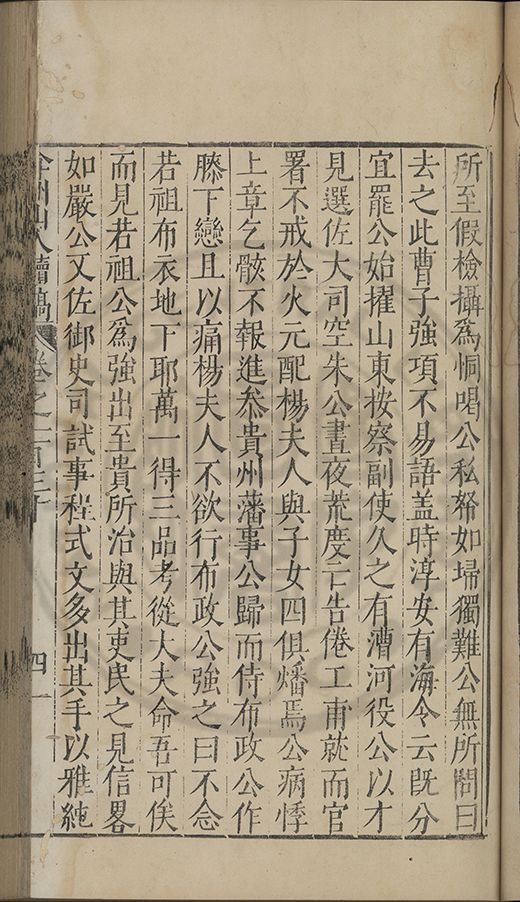 所至假檢攝爲恫喝公私帑如埽獨難公無所問曰
去之此曹子強項不易語盖時淳安有海令云旣分
宜罷公始擢山東按察副使久之有漕河役公以才
見選佐大司空朱公晝夜荒度亡告倦工甫就而官
署不戒於火元配楊夫人與子女四俱燔焉公病悸
上章乞骸不報進叅貴州藩事公歸而侍布政公作
膝下戀且以痛楊夫人不欲行布政公強之曰不念
若祖布衣地下耶萬一得三品考從大夫命吾可俟
而見若祖公爲強出至貴所治與其吏民之見信畧
如嚴公又佐御史司試事程式文多出其手以雅純
弇州山人續稿 卷之一百三十 四